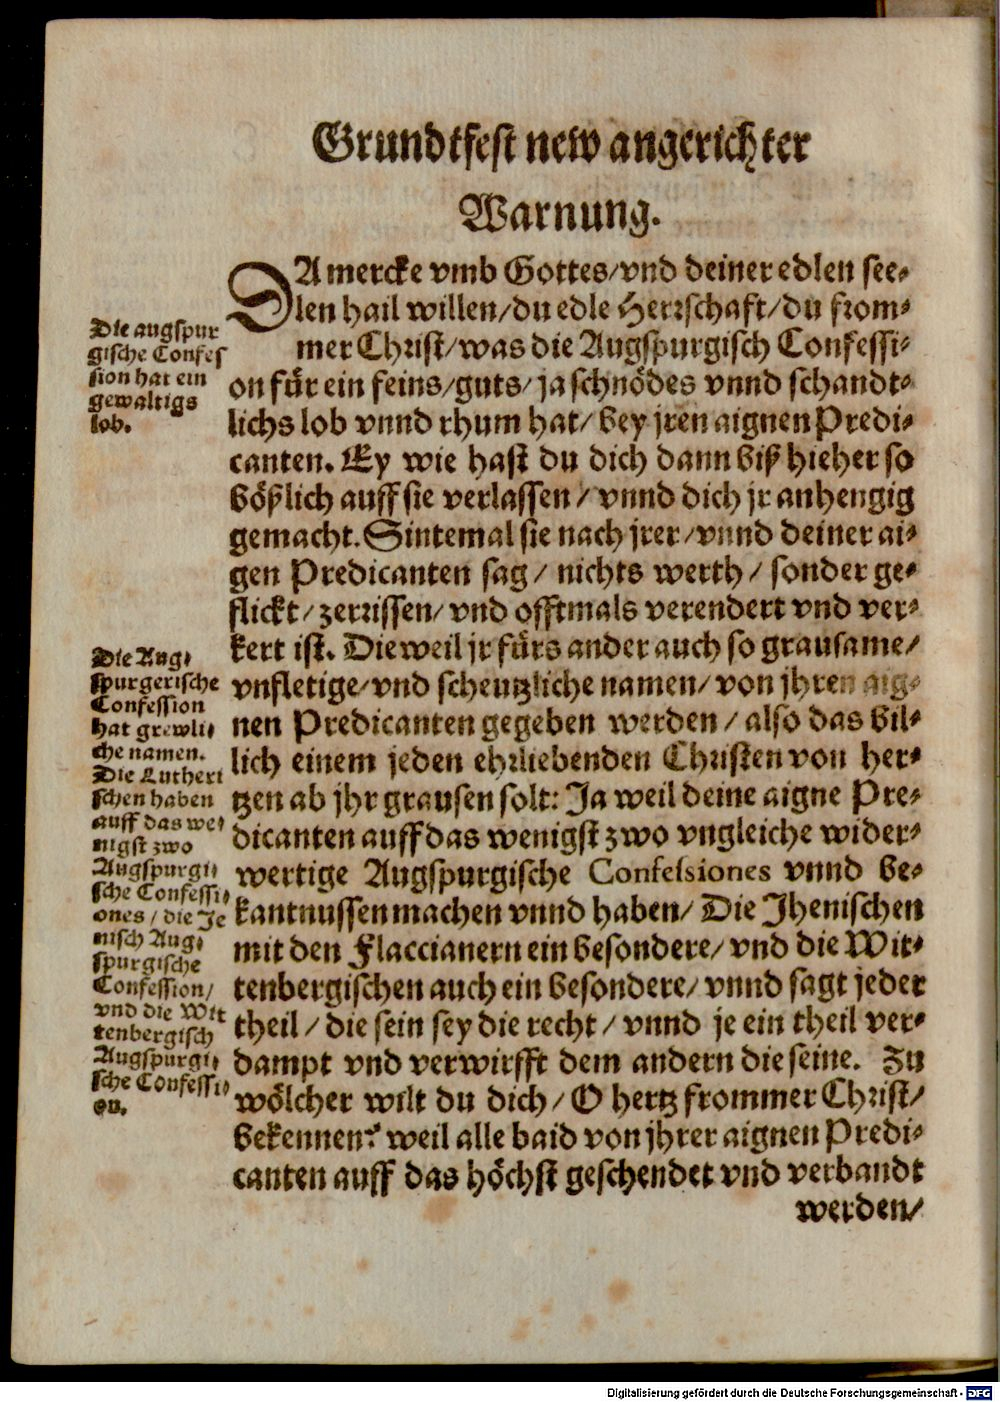 Grundtfest new angerichter
Warnung.
DA mercke vmb Gottes/vnd deiner edlen see-
len hail willen/du edle Herrschaft/du from-
mer Christ/was die Augspurgisch Confessi-
on für ein feins/guts/ja schnödes vnnd schandt-
lichs lob vnnd rhum hat/bey jren aignen Predi-
canten. Ey wie hast du dich dann biß hieher so
bößlich auff sie verlassen/vnnd dich jr anhengig
gemacht. Sintemal sie nach jrer/vnnd deiner ai-
gen Predicanten sag/nichts werth/sonder ge-
flickt/zerrissen/vnd offtmals verendert vnd ver-
kert ist. Die weil jr fürs ander auch so grausame/
vnfletige/vnd scheutzliche namen/von jhren aig-
nen Predicanten gegeben werden/also das bil-
lich einem jeden ehrliebenden Christen von her-
tzen ab jhr grausen solt: Ja weil deine aigne Pre-
dicanten auff das wenigst zwo vngleiche wider-
wertige Augspurgische Confessiones vnnd be-
kantnussen machen vnnd haben/Die Jhenischen
mit den Flaccianern ein besondere/vnd die Wit-
tenbergischen auch ein besondere/vnnd sagt jeder
theil/die sein sey die recht/vnnd je ein theil ver-
dampt vnd verwirfft dem andern die seine. Zu
wölcher wilt du dich/O hertz frommer Christ/
bekennen? weil alle baid von jhrer aignen Predi-
canten auff das höchst geschendet vnd verbandt
werden/
Die augspur
gische Confes
sion hat ein
gewaltigs
lob.
Die Aug-
spurgerische
Confession
hat grewli-
che namen.
Die Lutheri
schen haben
auff das we-
nigst zwo
Augspurgi-
sche Confessi-
ones/die Je
nisch Aug-
spurgische
Confession/
vnd die Wit
tenbergisch
Augspurgi-
sche Confessi-
on.
Digitalisierung gefördert durch die Deutsche Forschungsgemeinschaft - DFG